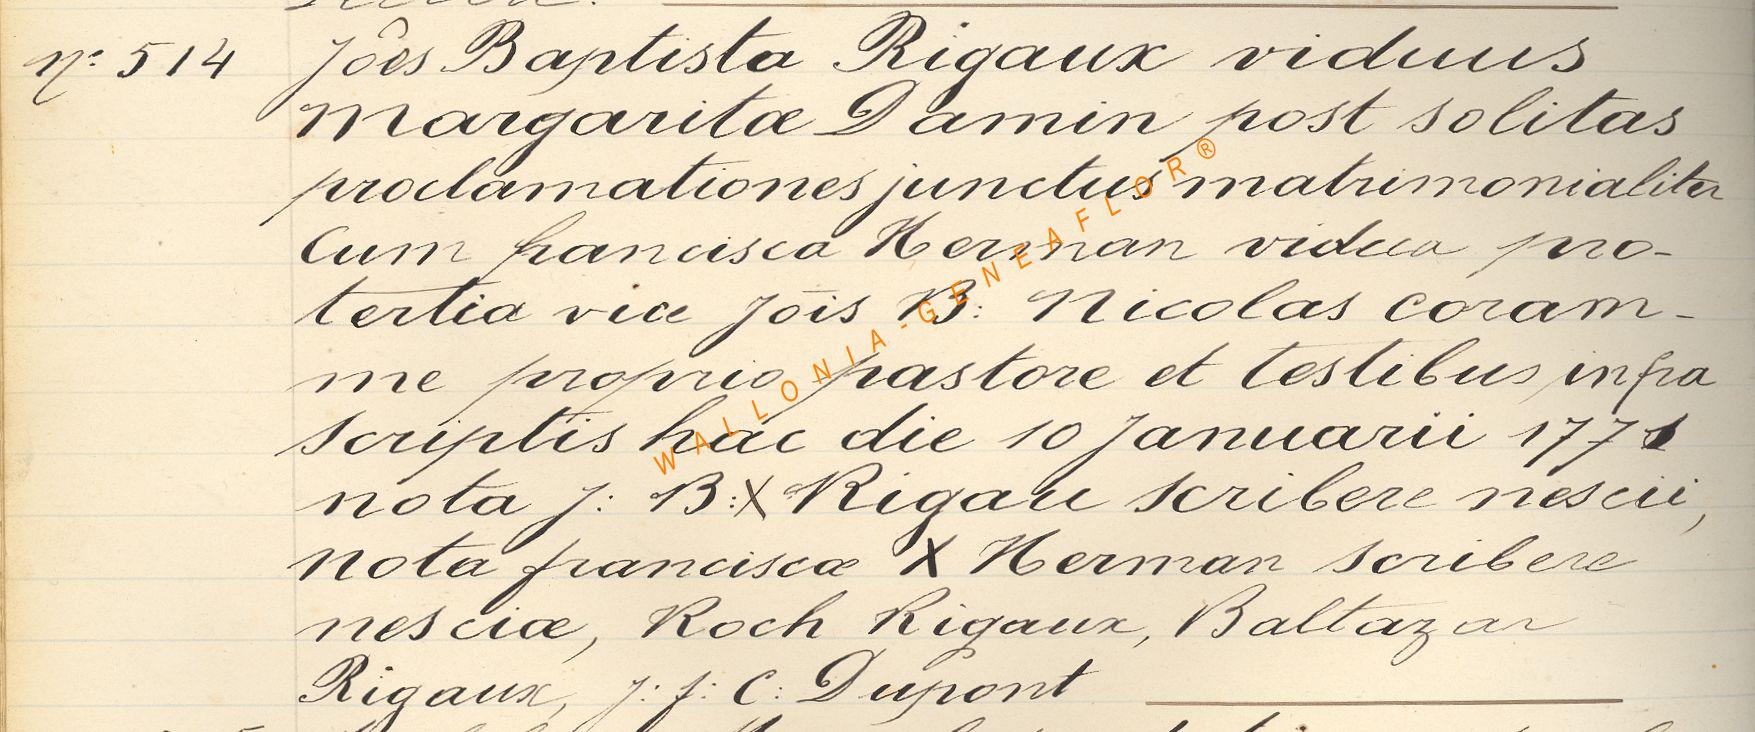 n° 514 Jôes Baptista Rigaux viduus
Margaritæ Damin post solitas
proclamationes junctus matrimonialiter
cum francisca Herman vidua pro-
tertia vice Jōis B: Nicolas coram-
me proprio pastore et testibus infra
scriptis hac die 10 Januarii 1771
nota J: B: X Rigau scribere nescii,
nota franciscæ X Herman scribere
nesciæ, Roch Rigaux, Baltazar
Rigaux, J: f: C: Dupont
WALLONIA-GENEAFLOR®